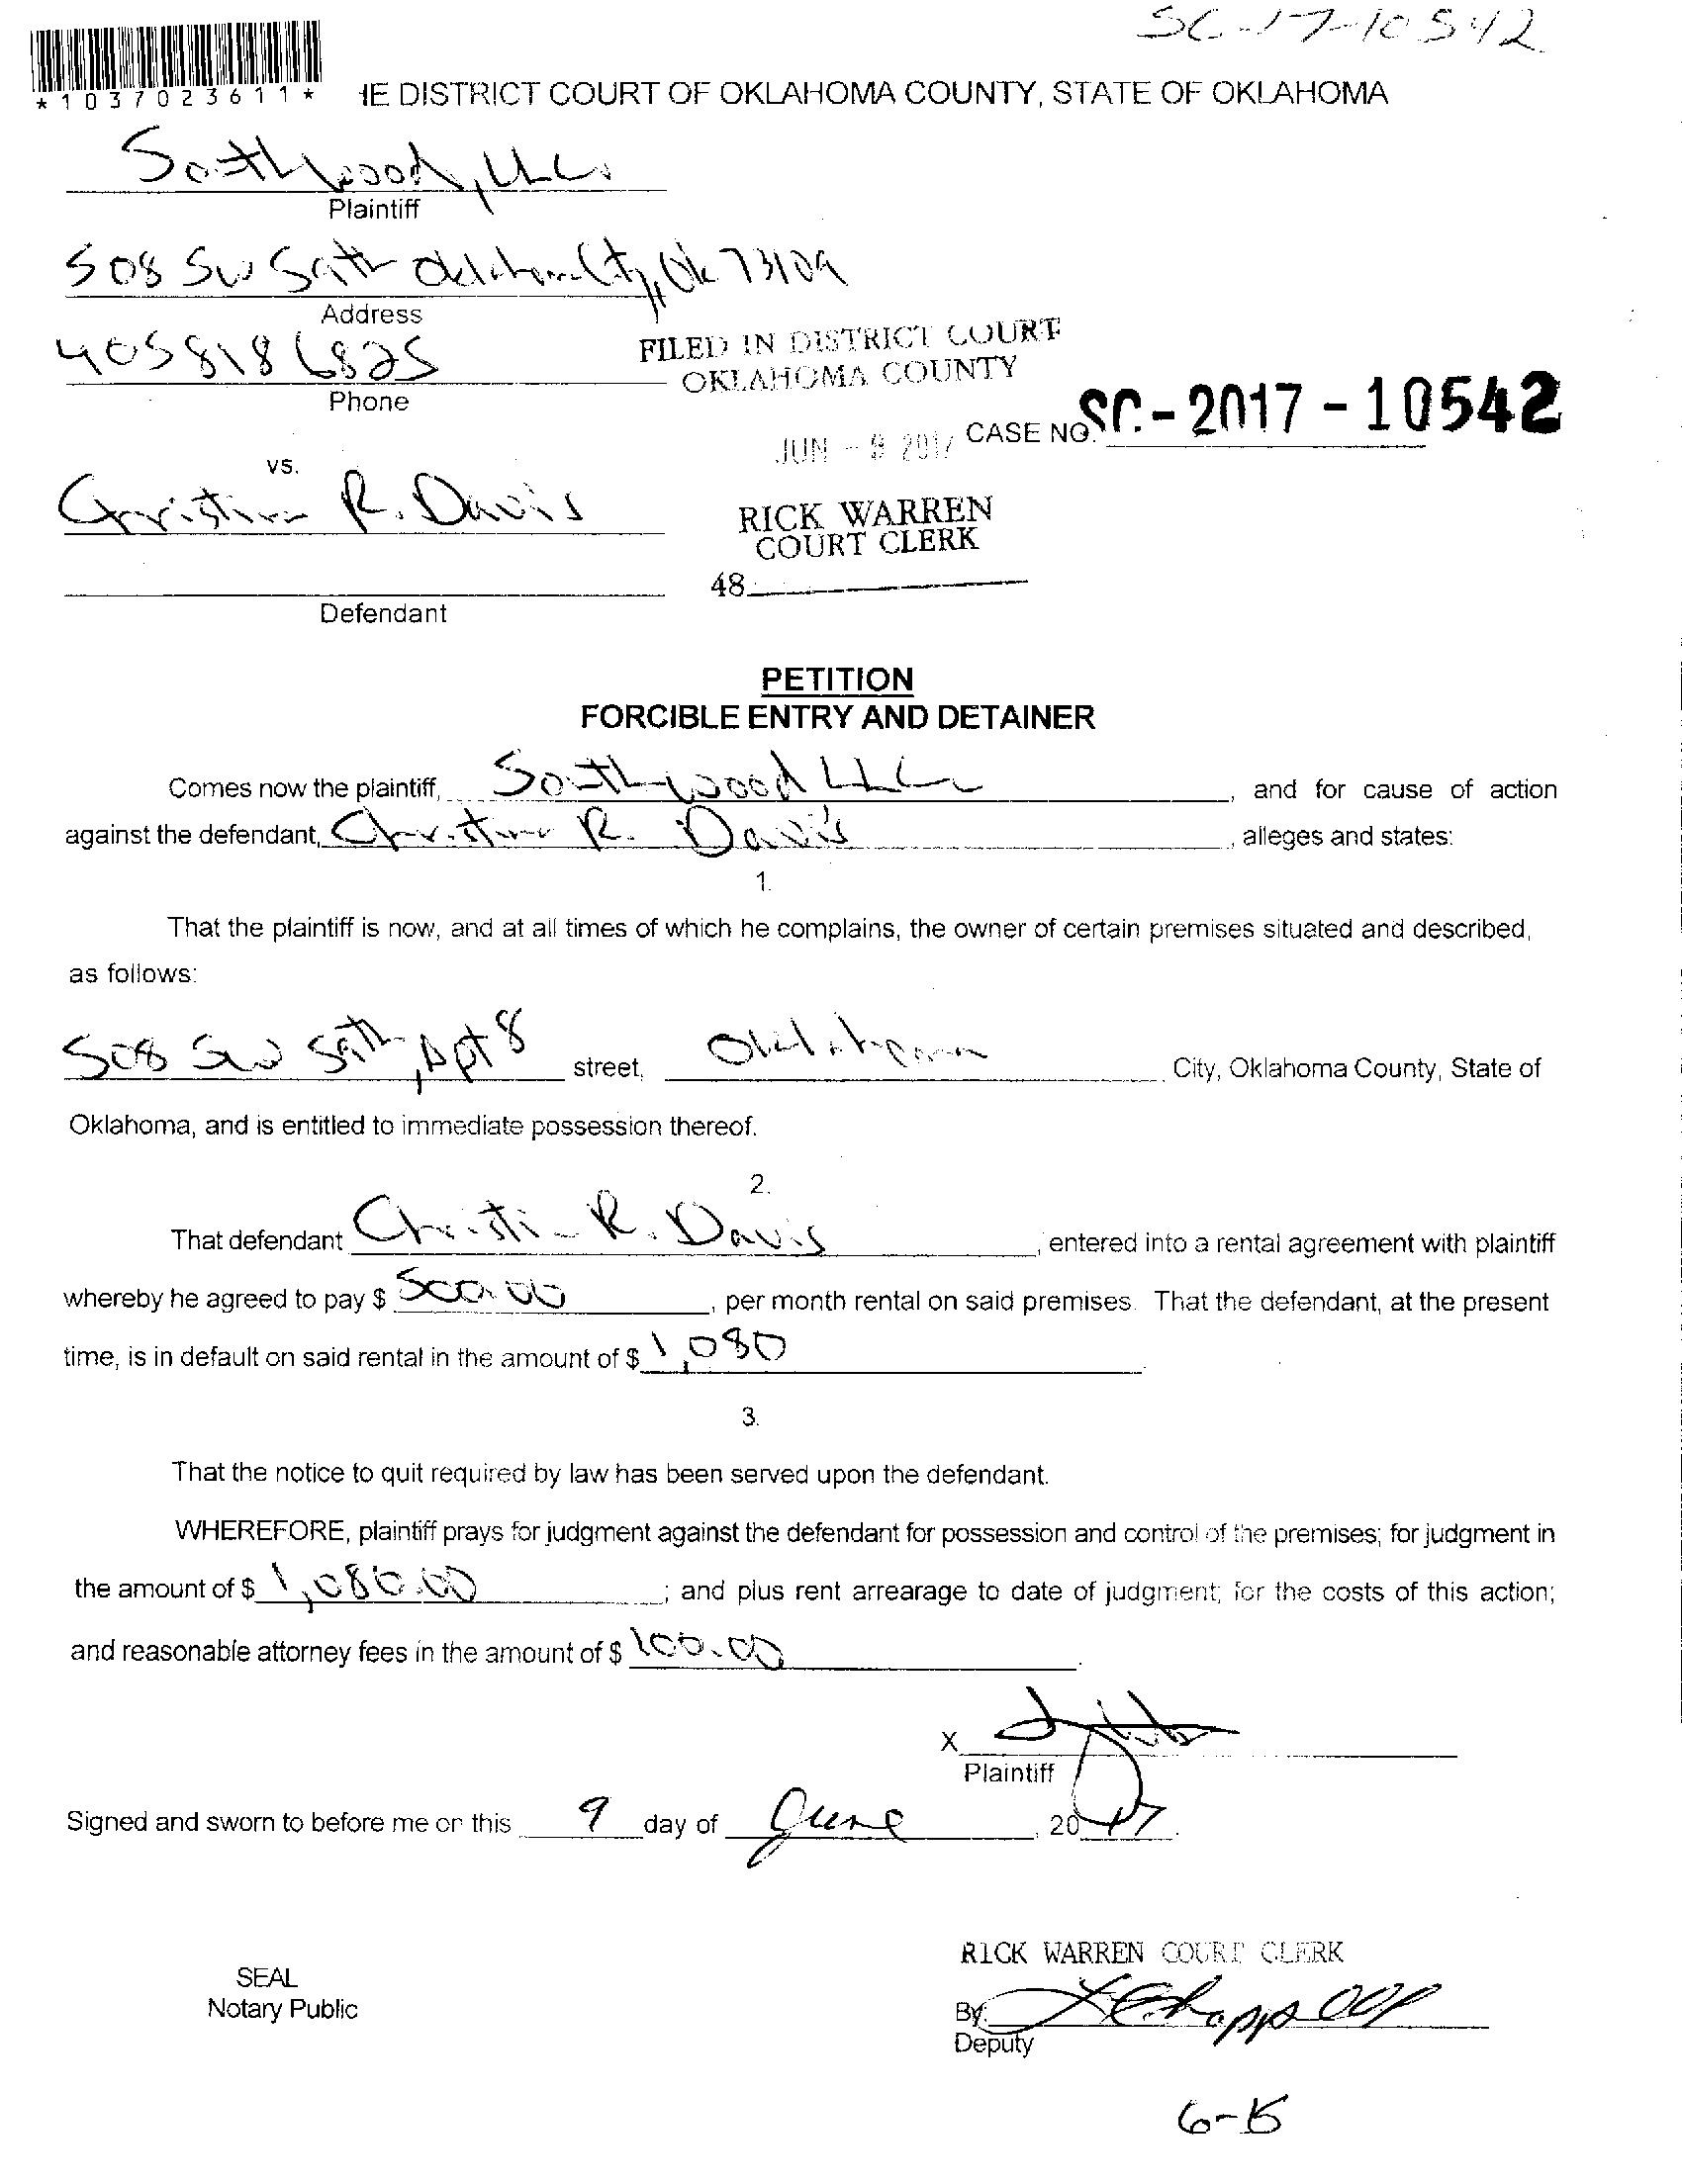 SC-17-10542
*1037023611*
HE DISTRICT COURT OF OKLAHOMA COUNTY, STATE OF OKLAHOMA
Southwood, LLC.
Plaintiff
508 SW 59th Oklahoma City, Ok 73109
Address
4058186825
Phone
FILED IN DISTRICT COURT
OKLAHOMA COUNTY
JUN - 9 2017
CASE NO. SC - 2017 - 10542
vs.
Christina R. Davis
RICK WARREN
COURT CLERK
48
Defendant
PETITION
FORCIBLE ENTRY AND DETAINER
Comes now the plaintiff, Southwood LLC, and for cause of action
against the defendant, Christina R. Davis, alleges and states:
1.
That the plaintiff is now, and at all times of which he complains, the owner of certain premises situated and described,
as follows:
508 SW 59th, Apt 8 street, Oklahoma City, Oklahoma County, State of
Oklahoma, and is entitled to immediate possession thereof.
2.
That defendant Christina R. Davis, entered into a rental agreement with plaintiff
whereby he agreed to pay $ 500.00, per month rental on said premises. That the defendant, at the present
time, is in default on said rental in the amount of $ 1,080
3.
That the notice to quit required by law has been served upon the defendant.
WHEREFORE, plaintiff prays for judgment against the defendant for possession and control of the premises; for judgment in
the amount of $ 1,080.00; and plus rent arrearage to date of judgment; for the costs of this action;
and reasonable attorney fees in the amount of $ 100.00.
X
Plaintiff
Signed and sworn to before me on this 9 day of June, 2017.
RICK WARREN COURT CLERK
SEAL
Notary Public
By:
Deputy
6-15